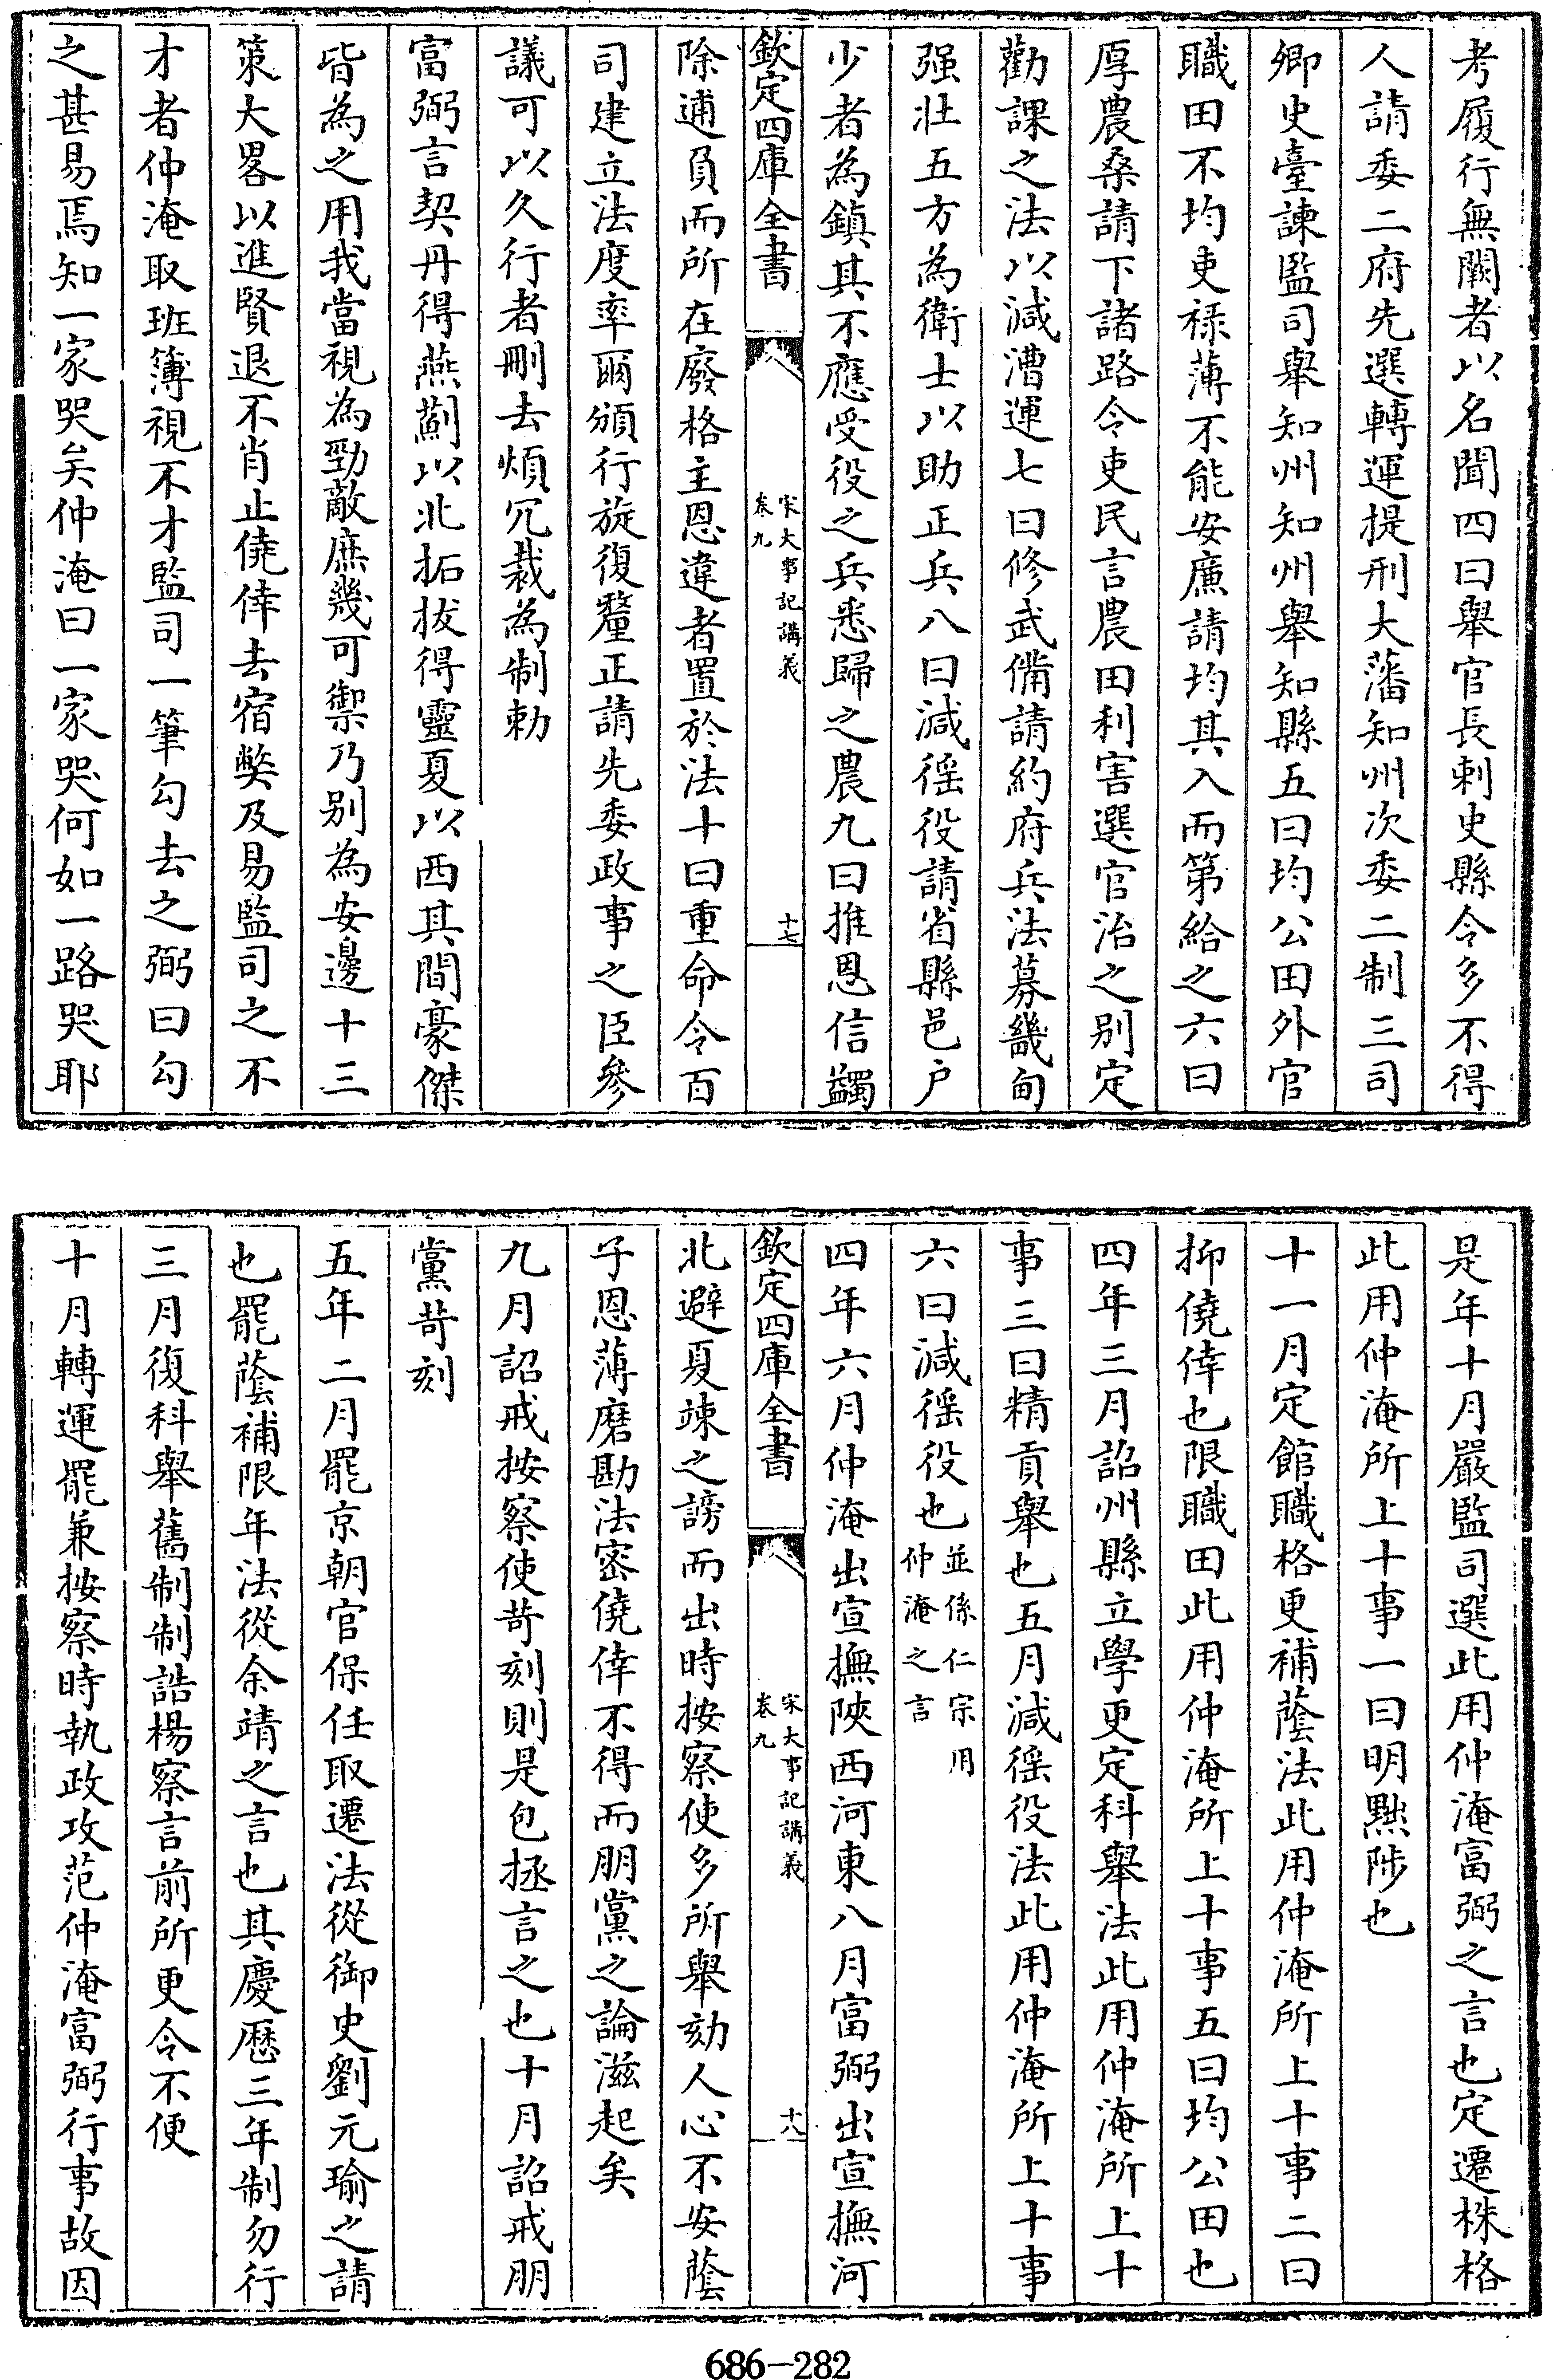 考履行無闕者以名聞四曰舉官長刺史縣令多不得
人請委二府先選轉運提刑大藩知州次委二制三司
卿史臺諫監司舉知州知州舉知縣五曰均公田外官
職田不均吏祿薄不能安廉請均其入而第給之六曰
厚農桑請下諸路令吏民言農田利害選官治之别定
勸課之法以減漕運七曰修武備請約府兵法募畿甸
强壯五方為衛士以助正兵八曰減徭役請省縣邑户
少者為鎮其不應受役之兵悉歸之農九曰推恩信蠲
欽定四庫全書
宋大事記講義
卷九
十七
除逋負而所在廢格主恩違者置於法十曰重命令百
司建立法度率爾頒行旋復釐正請先委政事之臣參
議可以久行者刪去煩冗裁為制勅
富弼言契丹得燕薊以北拓拔得靈夏以西其間豪傑
皆為之用我當視為勁敵庶幾可禦乃别為安邊十三
策大畧以進賢退不肖止僥倖去宿弊及易監司之不
才者仲淹取班簿視不才監司一筆勾去之弼曰勾
之甚易焉知一家哭矣仲淹曰一家哭何如一路哭耶
是年十月嚴監司選此用仲淹富弼之言也定遷株格
此用仲淹所上十事一曰明黜陟也
十一月定館職格更補蔭法此用仲淹所上十事二曰
抑僥倖也限職田此用仲淹所上十事五曰均公田也
四年三月詔州縣立學更定科舉法此用仲淹所上十
事三曰精貢舉也五月減徭役法此用仲淹所上十事
六曰減徭役也並係仁宗用仲淹之言
四年六月仲淹出宣撫陝西河東八月富弼出宣撫河
欽定四庫全書
宋大事記講義
卷九
十八
北避夏竦之謗而出時按察使多所舉劾人心不安蔭
子恩薄磨勘法宻僥倖不得而朋黨之論滋起矣
九月詔戒按察使苛刻則是包拯言之也十月詔戒朋
黨苛刻
五年二月罷京朝官保任取遷法從御史劉元瑜之請
也罷蔭補限年法從余靖之言也其慶厯三年制勿行
三月復科舉舊制制誥楊察言前所更令不便
十月轉運罷兼按察時執政攻范仲淹富弼行事故因
686-282